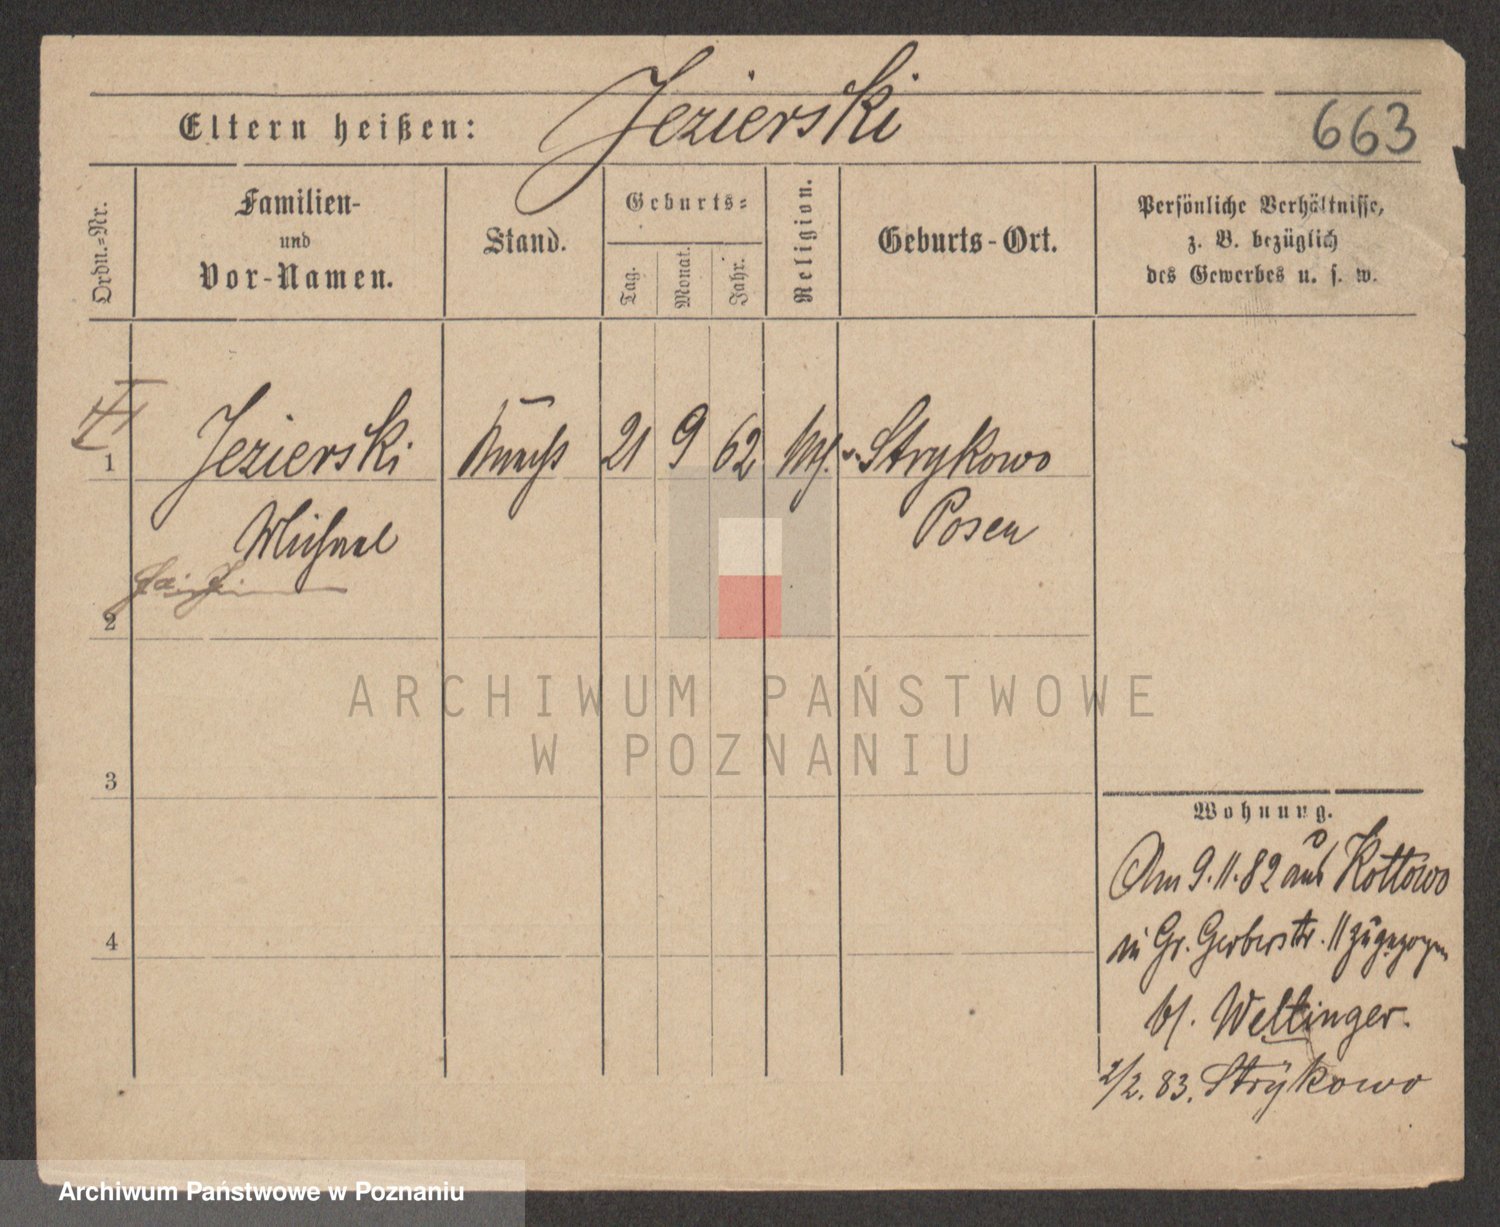 Eltern heißen: Jezierski
663
Ordn.=Nr.
Familien-
und
Vor-Namen.
Stand.
Geburts=
Tag.
Monat.
Jahr.
Religion.
Geburts-Ort.
Persönliche Verhältnisse,
z. B. bezüglich
des Gewerbes u. s. w.
1 Jezierski Knecht 21 9 62 Strykowo
Michael Posen
2
ARCHIWUM PAŃSTWOWE
W POZNANIU
3
Wohnung.
Am 9.11.82 aus Kottowo
in Gr. Gerberstr. 11 zugezogen
b/. Weltinger.
2/2.83. Strÿkowo
4
Archiwum Państwowe w Poznaniu